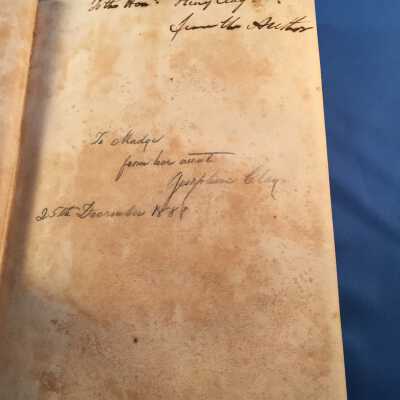 To the Hon: Henry Clay
from the Author
To Madge
from her aunt
Josephine Clay
25th December 1888